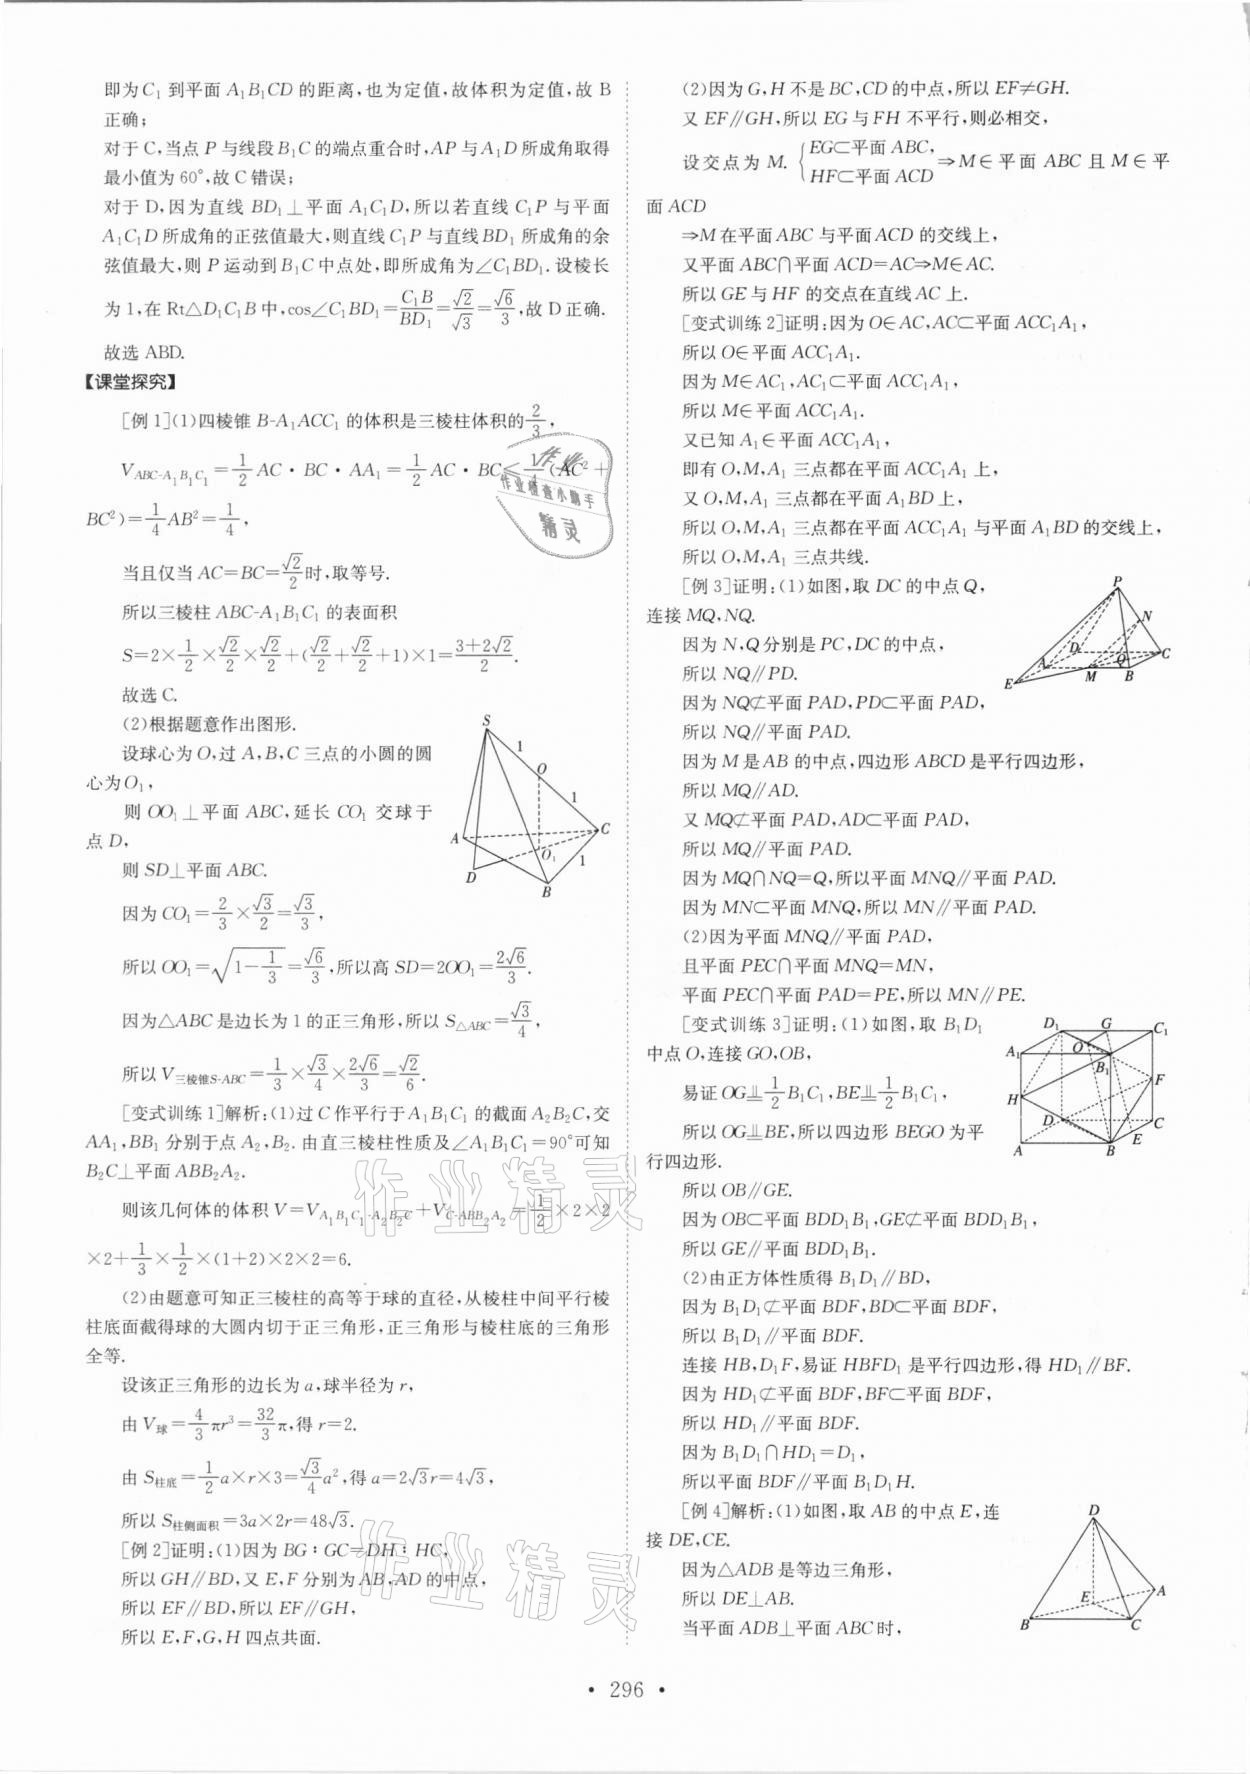 即为C₁ 到平面 A₁B₁CD 的距离,也为定值,故体积为定值,故 B
正确;
对于 C,当点 P 与线段B₁C 的端点重合时,AP 与A₁D 所成角取得
最小值为 60°,故 C 错误;
对于 D,因为直线 BD₁⊥平面 A₁C₁D,所以若直线 C₁P 与平面
A₁C₁D 所成角的正弦值最大,则直线 C₁P 与直线BD₁ 所成角的余
弦值最大,则 P 运动到 B₁C 中点处,即所成角为∠C₁BD₁.设棱长
为 1,在 Rt△D₁C₁B 中,cos∠C₁BD₁=C₁B/BD₁=√2/√3=√6/3,故 D 正确.
故选 ABD.
【课堂探究】
[例 1](1)四棱锥 B-A₁ACC₁ 的体积是三棱柱体积的2/3,
V_{ABC-A₁B₁C₁}=1/2 AC·BC·AA₁=1/2 AC·BC≤1/4(AC²+
BC²)=1/4 AB²=1/4,
当且仅当 AC=BC=√2/2时,取等号.
所以三棱柱 ABC-A₁B₁C₁ 的表面积
S=2×1/2×√2/2×√2/2+(√2/2+√2/2+1)×1=(3+2√2)/2.
故选 C.
(2)根据题意作出图形.
设球心为 O,过 A,B,C 三点的小圆的圆
心为O₁,
则 OO₁⊥平面 ABC,延长 CO₁ 交球于
点 D,
则 SD⊥平面 ABC.
因为 CO₁=2/3×√3/2=√3/3,
所以 OO₁=√(1-1/3)=√6/3,所以高 SD=2OO₁=2√6/3.
因为△ABC 是边长为 1 的正三角形,所以 S△ABC=√3/4,
所以 V三棱锥S-ABC=1/3×√3/4×2√6/3=√2/6.
S
1
O
1
A
C
O₁
1
D
B
[变式训练 1]解析:(1)过 C 作平行于A₁B₁C₁ 的截面 A₂B₂C,交
AA₁,BB₁ 分别于点 A₂,B₂.由直三棱柱性质及∠A₁B₁C₁=90°可知
B₂C⊥平面 ABB₂A₂.
则该几何体的体积 V=V_{A₁B₁C₁-A₂B₂C}+V_{C-ABB₂A₂}=1/2×2×2
×2+1/3×1/2×(1+2)×2×2=6.
(2)由题意可知正三棱柱的高等于球的直径,从棱柱中间平行棱
柱底面截得球的大圆内切于正三角形,正三角形与棱柱底的三角形
全等.
设该正三角形的边长为 a,球半径为 r,
由 V球=4/3πr³=32/3π,得 r=2.
由 S柱底=1/2a×r×3=√3/4a²,得 a=2√3r=4√3,
所以 S柱侧面积=3a×2r=48√3.
[例 2]证明:(1)因为 BG∶GC=DH∶HC,
所以 GH∥BD,又 E,F 分别为 AB,AD 的中点,
所以 EF∥BD,所以 EF∥GH,
所以 E,F,G,H 四点共面.
(2)因为 G,H 不是 BC,CD 的中点,所以 EF≠GH.
又 EF∥GH,所以 EG 与 FH 不平行,则必相交,
设交点为 M. {EG⊂平面 ABC, HF⊂平面 ACD ⇒M∈平面 ABC 且 M∈平
面 ACD
⇒M 在平面 ABC 与平面 ACD 的交线上,
又平面 ABC∩平面 ACD=AC⇒M∈AC.
所以 GE 与 HF 的交点在直线 AC 上.
[变式训练 2]证明:因为 O∈AC,AC⊂平面 ACC₁A₁,
所以 O∈平面 ACC₁A₁.
因为 M∈AC₁,AC₁⊂平面 ACC₁A₁,
所以 M∈平面 ACC₁A₁.
又已知 A₁∈平面 ACC₁A₁,
即有 O,M,A₁ 三点都在平面 ACC₁A₁ 上,
又 O,M,A₁ 三点都在平面 A₁BD 上,
所以 O,M,A₁ 三点都在平面 ACC₁A₁ 与平面 A₁BD 的交线上,
所以 O,M,A₁ 三点共线.
[例 3]证明:(1)如图,取 DC 的中点 Q,
连接 MQ,NQ.
因为 N,Q分别是 PC,DC 的中点,
所以 NQ∥PD.
因为 NQ⊄平面 PAD,PD⊂平面 PAD,
所以 NQ∥平面 PAD.
P
N
D
C
A
Q
E
M
B
因为 M 是 AB 的中点,四边形 ABCD 是平行四边形,
所以 MQ∥AD.
又 MQ⊄平面 PAD,AD⊂平面 PAD,
所以 MQ∥平面 PAD.
因为 MQ∩NQ=Q,所以平面 MNQ∥平面 PAD.
因为 MN⊂平面 MNQ,所以 MN∥平面 PAD.
(2)因为平面 MNQ∥平面 PAD,
且平面 PEC∩平面 MNQ=MN,
平面 PEC∩平面 PAD=PE,所以 MN∥PE.
[变式训练 3]证明:(1)如图,取 B₁D₁
中点 O,连接 GO,OB,
易证 OG⫫1/2B₁C₁,BE⫫1/2B₁C₁,
所以 OG⫫BE,所以四边形 BEGO 为平
行四边形.
D₁
G
C₁
A₁
O
B₁
F
H
D
C
A
B
E
所以 OB∥GE.
因为 OB⊂平面 BDD₁B₁,GE⊄平面 BDD₁B₁,
所以 GE∥平面 BDD₁B₁.
(2)由正方体性质得 B₁D₁∥BD,
因为 B₁D₁⊄平面 BDF,BD⊂平面 BDF,
所以 B₁D₁∥平面 BDF.
连接 HB,D₁F,易证 HBFD₁ 是平行四边形,得 HD₁∥BF.
因为 HD₁⊄平面 BDF,BF⊂平面 BDF,
所以 HD₁∥平面 BDF.
因为 B₁D₁∩HD₁=D₁,
所以平面 BDF∥平面 B₁D₁H.
[例 4]解析:(1)如图,取 AB 的中点 E,连
接 DE,CE.
因为△ADB 是等边三角形,
所以 DE⊥AB.
当平面 ADB⊥平面 ABC 时,
D
E
A
B
C
作业
作业检查小助手
精灵
作业精灵
作业精灵
• 296 •